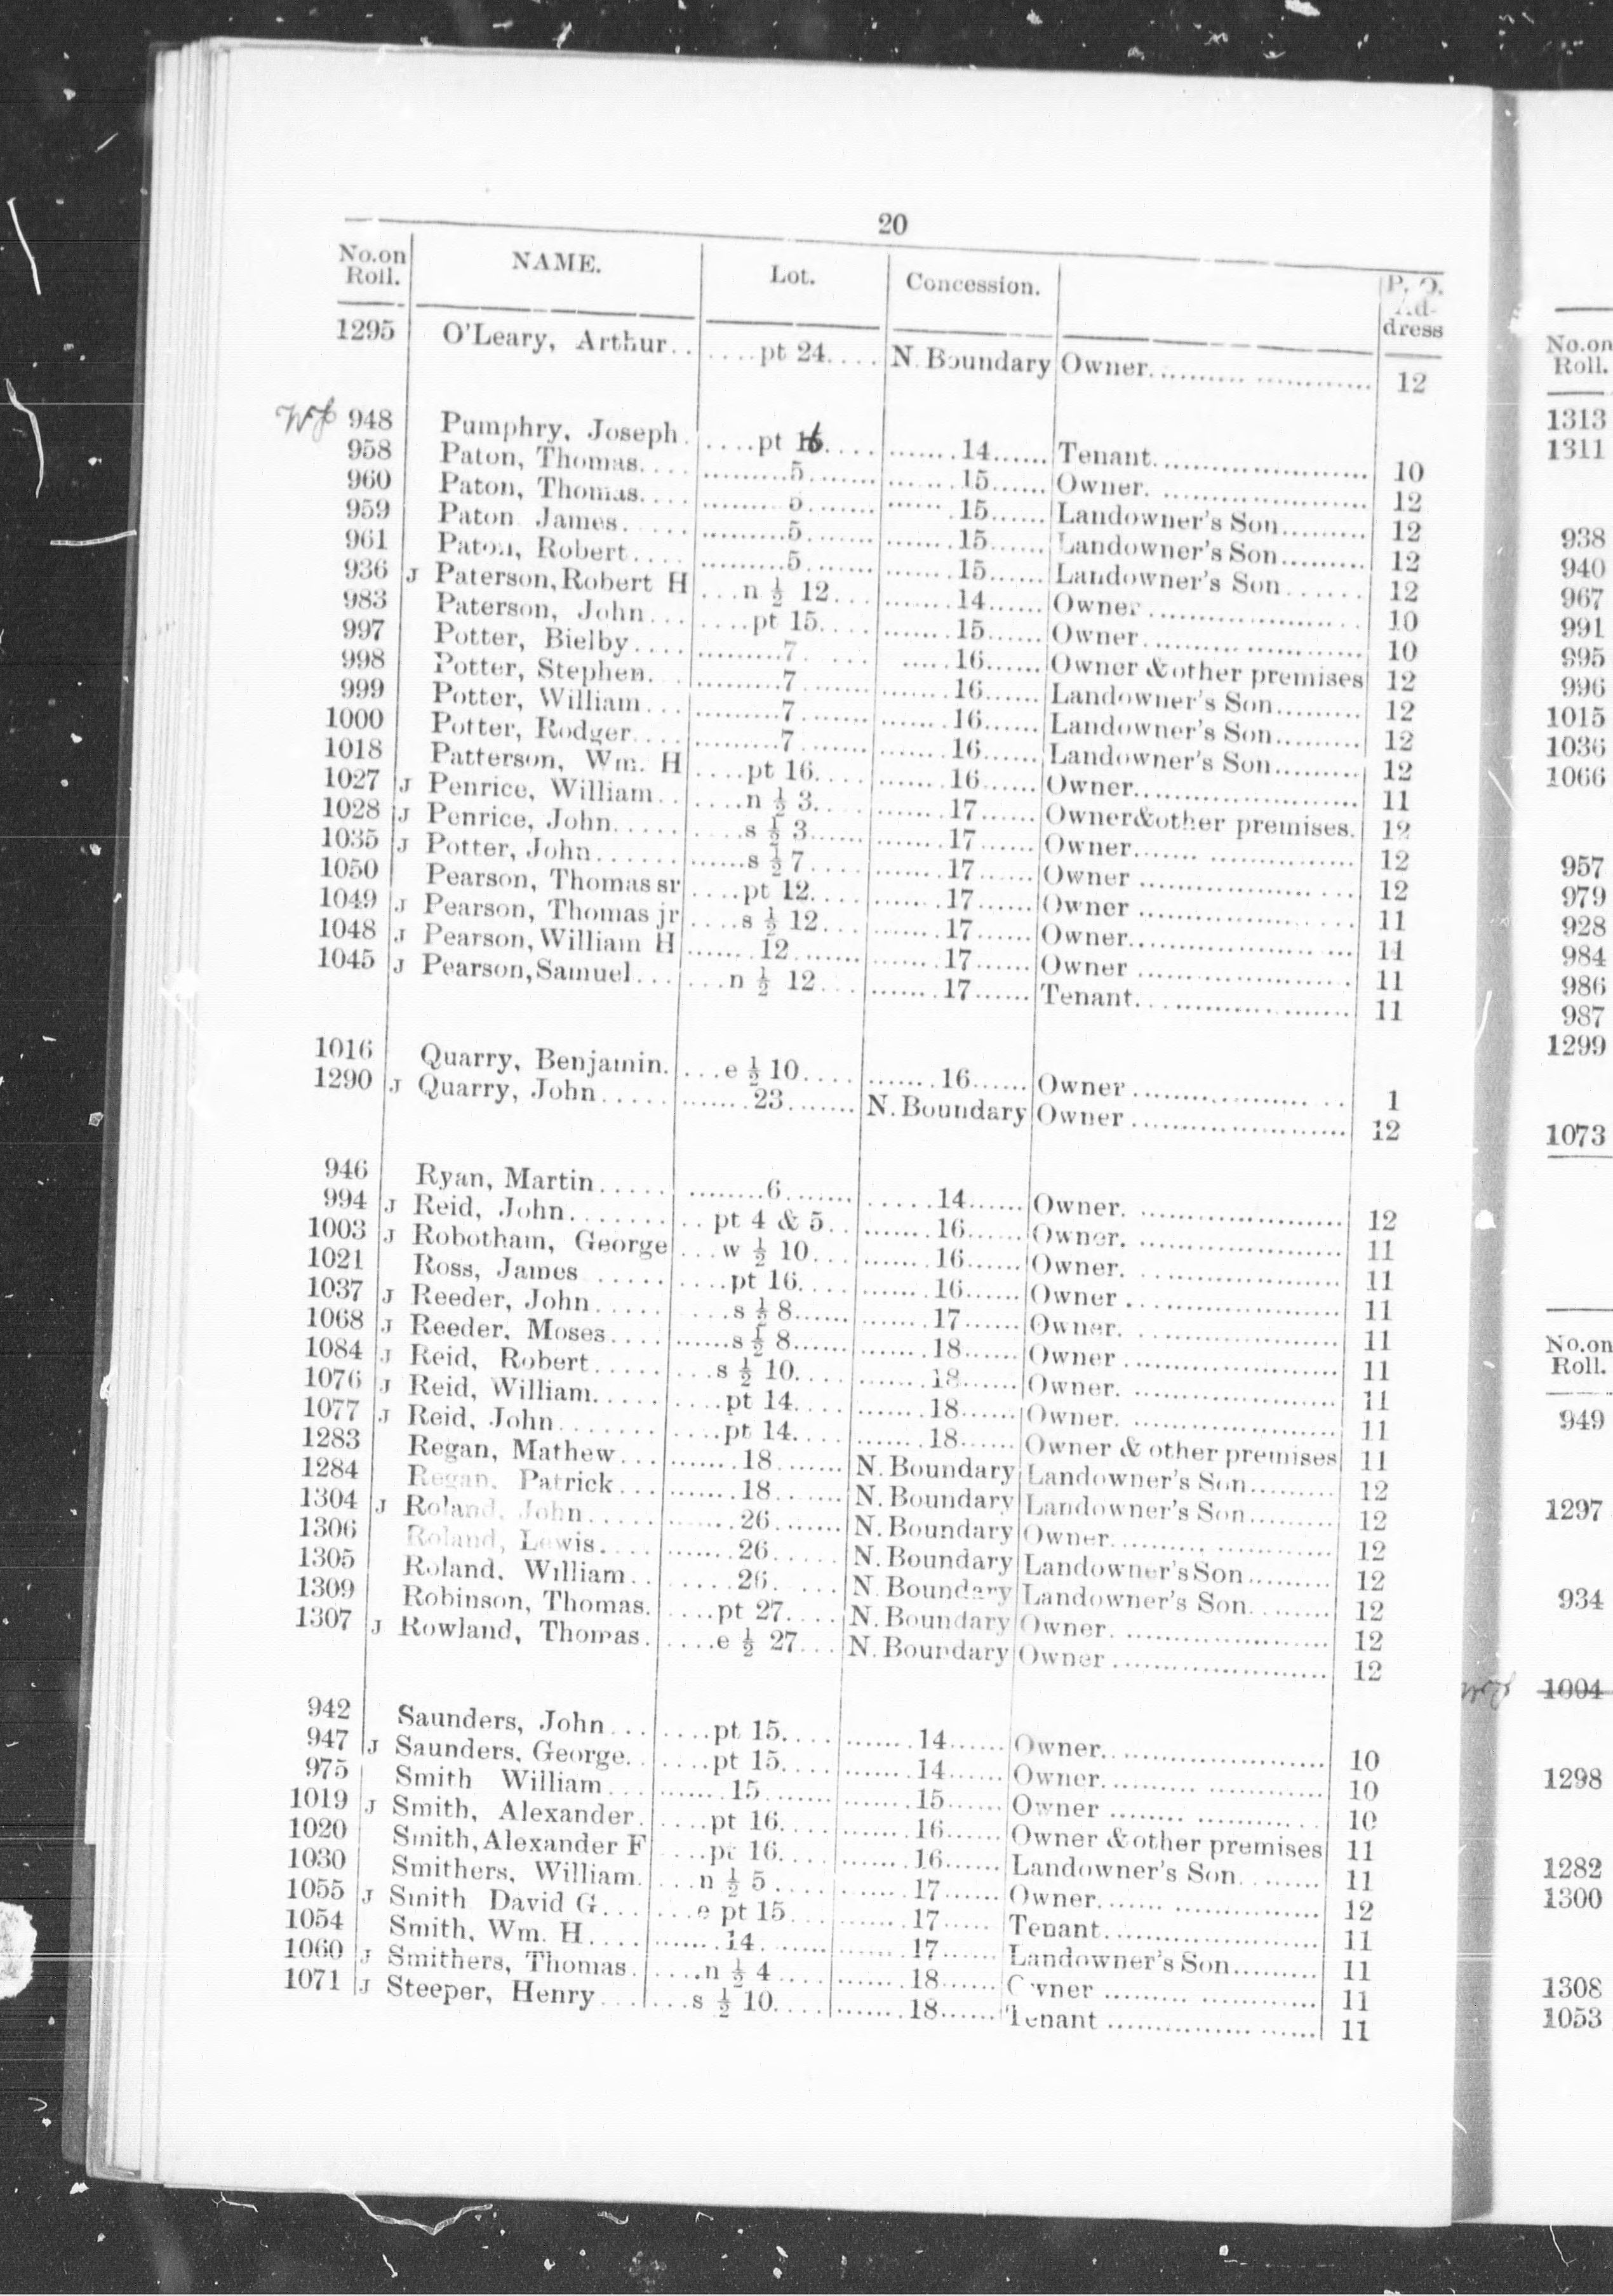 20
No.on Roll. NAME. Lot. Concession. P. O. Ad-dress
1295 O'Leary, Arthur.. ....pt 24.... N. Boundary Owner.................... 12
948 Pumphry, Joseph. ....pt 16.... .......14...... Tenant.................... 10
958 Paton, Thomas.... .........5....... .......15...... Owner. .................... 12
960 Paton, Thomas.... .........5....... .......15...... Landowner's Son......... 12
959 Paton James..... .........5....... .......15...... Landowner's Son......... 12
961 Paton, Robert.... .........5....... .......15...... Landowner's Son....... 12
936 J Paterson,Robert H ...n ½ 12... .......14...... Owner .................... 10
983 Paterson, John... ....pt 15.... .......15...... Owner.................... 10
997 Potter, Bielby.... .........7. ... .....16...... Owner &other premises 12
998 Potter, Stephen. . .........7....... .......16...... Landowner's Son......... 12
999 Potter, William... .........7....... .......16...... Landowner's Son......... 12
1000 Potter, Rodger.... .........7....... .......16...... Landowner's Son......... 12
1018 Patterson, Wm. H ....pt 16.... .......16...... Owner.................... 11
1027 J Penrice, William.. ....n ½ 3.... .......17...... Owner&other premises. 12
1028 J Penrice, John..... ....s ½ 3...... .......17...... Owner.................... 12
1035 J Potter, John...... ......s ½ 7.... .......17...... Owner .................... 12
1050 Pearson, Thomas sr ....pt 12.... .......17...... Owner .................... 11
1049 J Pearson, Thomas jr ....s ½ 12... .......17...... Owner.................... 11
1048 J Pearson,William H .......12....... .......17...... Owner .................... 11
1045 J Pearson,Samuel... ...n ½ 12... .......17...... Tenant.................... 11
1016 Quarry, Benjamin. ...e ½ 10.... .......16...... Owner .................... 1
1290 J Quarry, John..... .......23....... N. Boundary Owner .................... 12
946 Ryan, Martin..... ........6....... ......14...... Owner. .................... 12
994 J Reid, John....... .. pt 4 & 5.. .......16...... Owner. .................... 11
1003 J Robotham, George ...w ½ 10... .......16...... Owner. .................... 11
1021 Ross, James ...... ....pt 16.... .......16...... Owner .................... 11
1037 J Reeder, John..... ...s ½ 8...... .......17...... Owner. .................... 11
1068 J Reeder, Moses.... ......s ½ 8...... .......18...... Owner .................... 11
1084 J Reid, Robert..... ...s ½ 10.... .......18...... Owner. .................... 11
1076 J Reid, William..... ....pt 14.... .......18...... Owner. .................... 11
1077 J Reid, John........ ....pt 14.... .......18...... Owner & other premises 11
1283 Regan, Mathew... .......18....... N. Boundary Landowner's Son......... 12
1284 Regan, Patrick... .......18....... N. Boundary Landowner's Son......... 12
1304 J Roland, John..... .......26....... N. Boundary Owner.................... 12
1306 Roland, Lewis.... .......26...... N. Boundary Landowner's Son......... 12
1305 Roland, William.. ......26. .... N. Boundary Landowner's Son......... 12
1309 Robinson, Thomas. ....pt 27.... N. Boundary Owner. .................... 12
1307 J Rowland, Thomas. ....e ½ 27... N. Boundary Owner .................... 12
942 Saunders, John... ....pt 15.... .......14...... Owner.................... 10
947 J Saunders, George. ....pt 15.... .......14...... Owner.................... 10
975 Smith William... .......15....... .......15...... Owner .................... 10
1019 J Smith, Alexander. ....pt 16.... .......16...... Owner &other premises 11
1020 Smith,Alexander F ....pt 16.... .......16...... Landowner's Son........ 11
1030 Smithers, William. ...n ½ 5.... .......17...... Owner.................... 12
1055 J Smith David G... ...e pt 15... .......17..... Tenant.................... 11
1054 Smith, Wm. H.... .......14....... .......17...... Landowner's Son......... 11
1060 J Smithers, Thomas. ....n ½ 4.... .......18...... Owner .................... 11
1071 J Steeper, Henry... ...s ½ 10.... .......18...... Tenant .................... 11
No.on Roll.
1313
1311
938
940
967
991
995
996
1015
1036
1066
957
979
928
984
986
987
1299
1073
No.on Roll.
949
1297
934
1004
1298
1282
1300
1308
1053